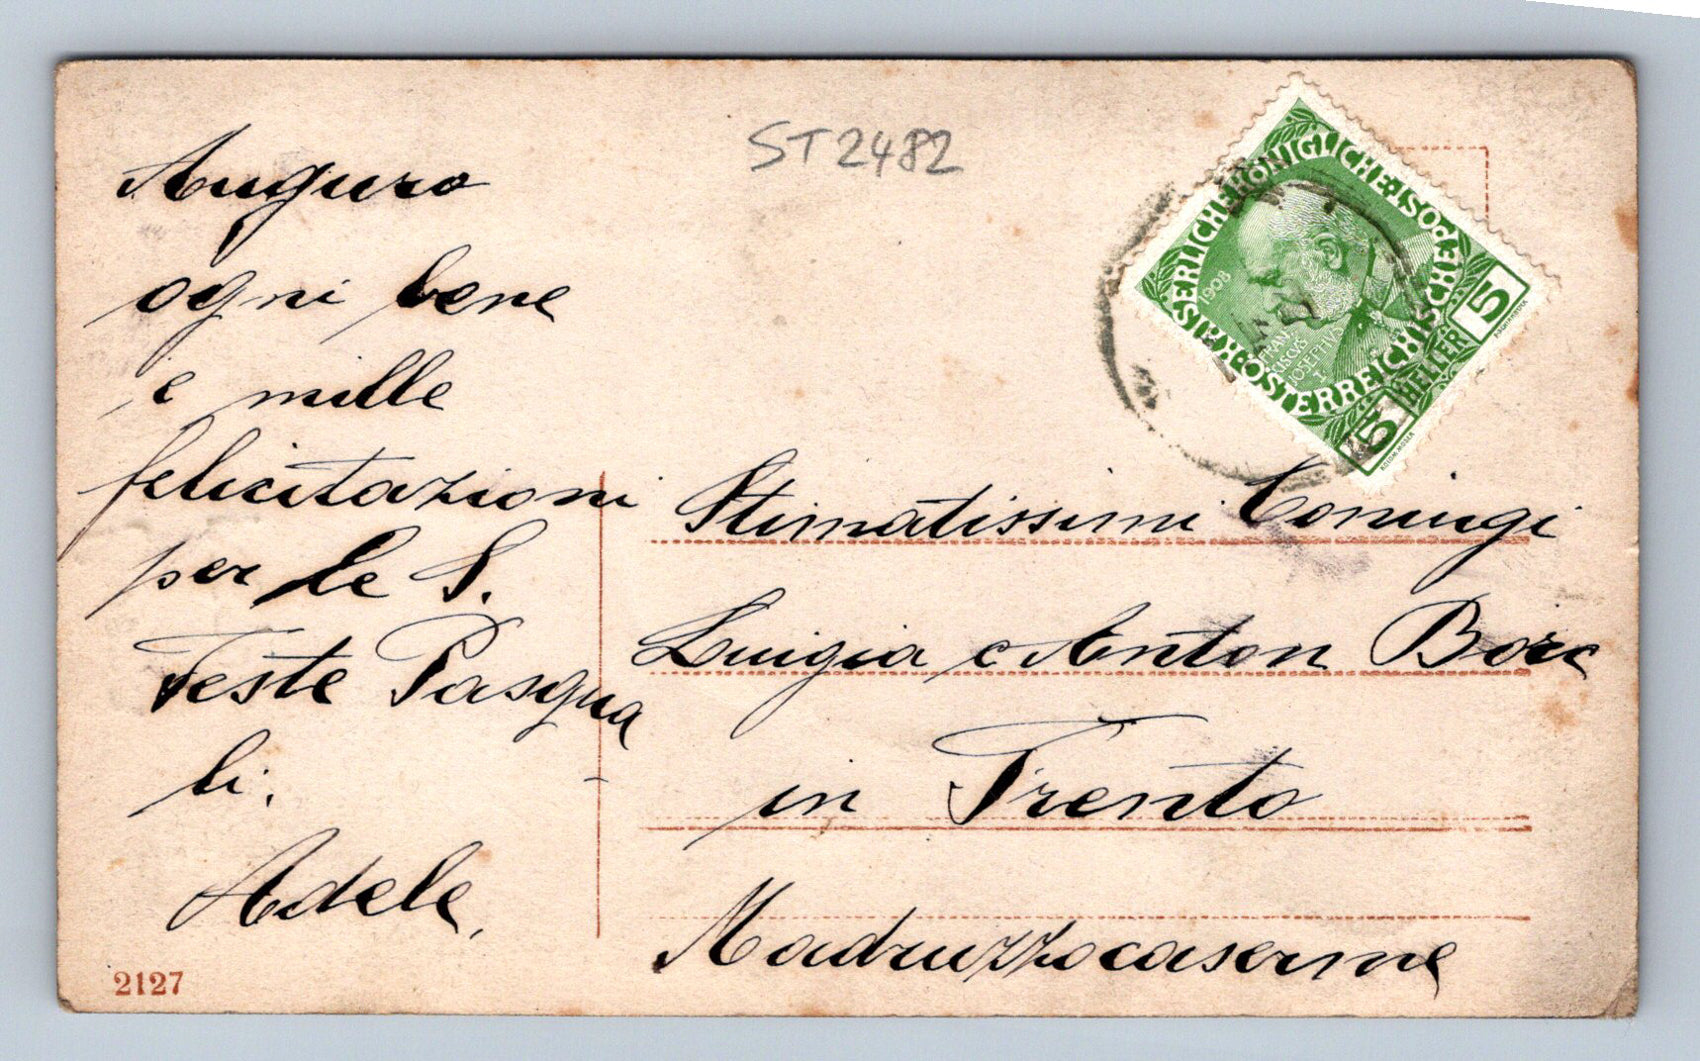 ST2482
Auguro
ogni bene
e mille
felicitazioni
per le S.
Feste Pasqua
li.
Adele,
2127
KAISERLICHE KÖNIGLICHE POST
ÖSTERREICHISCHE
1908
FRAN
CISCVS
IOSEPHVS
I
5
HELLER
5
KOLOM·MOSER
Stimatissimi Coniugi
Luigia e Anton
in Trento
Madruzzocaserme